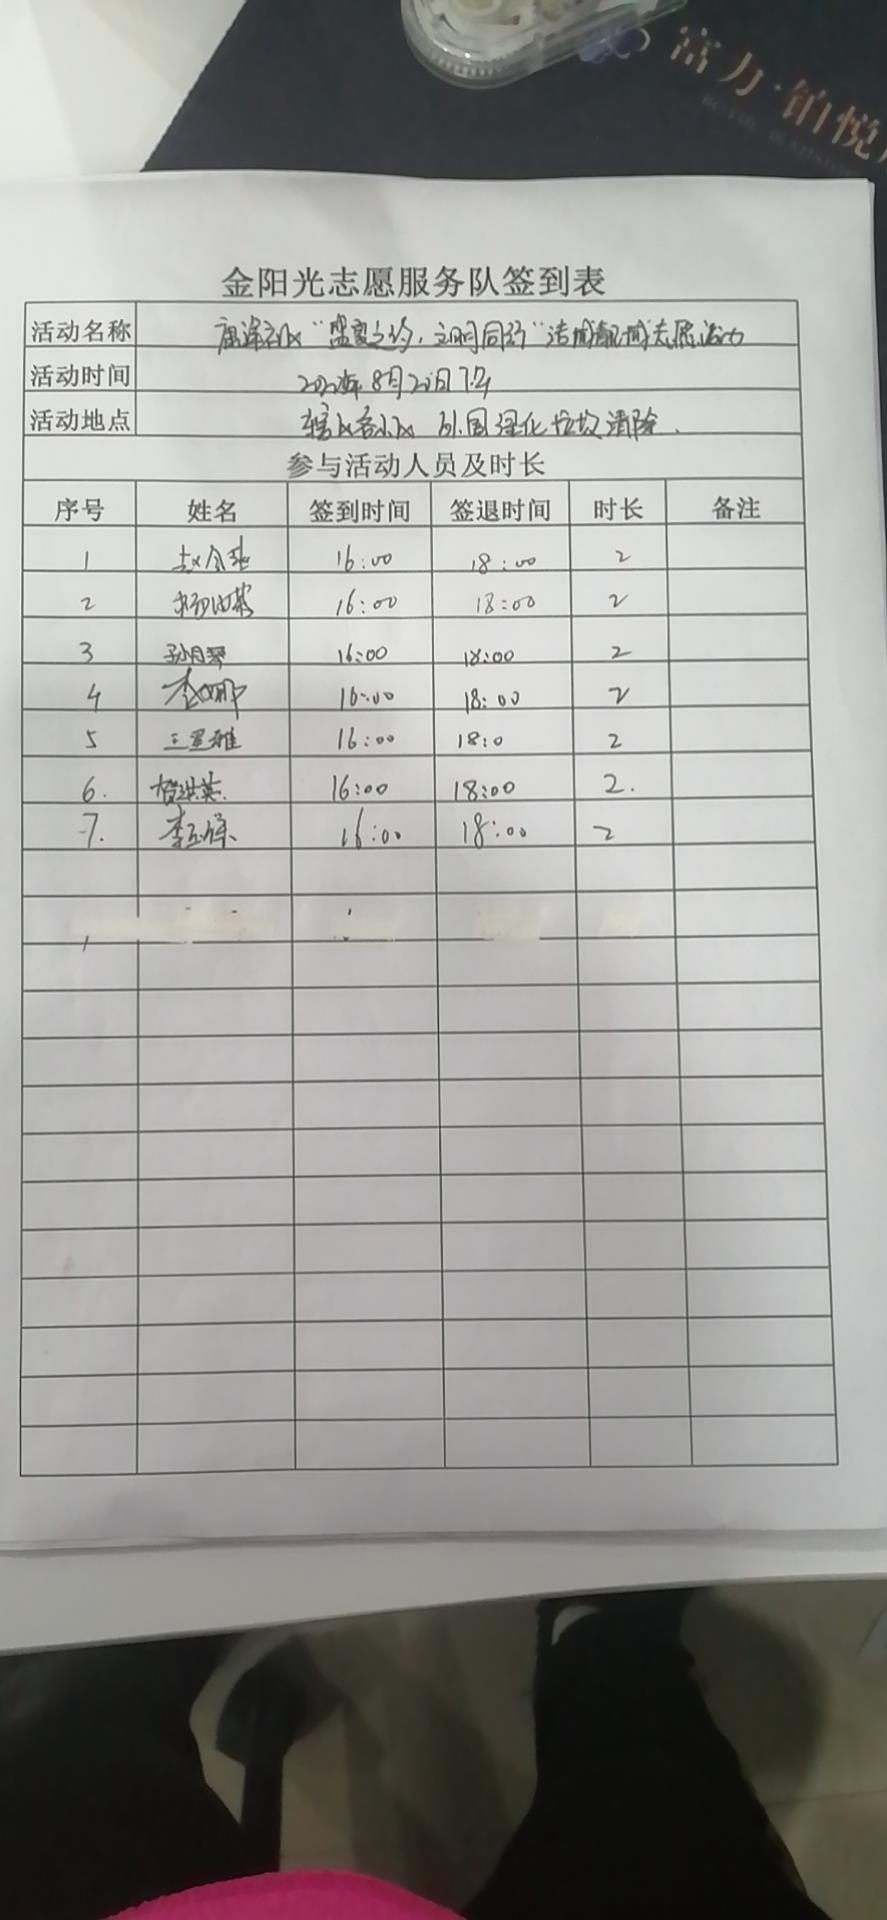 富力·铂悦
金阳光志愿服务队签到表
活动名称 "盛夏之约,文明同行"洁城靓城志愿活动
活动时间 8月20日
活动地点 辖区各小区 外围绿化垃圾清除.
参与活动人员及时长
序号 姓名 签到时间 签退时间 时长 备注
1 16:00 18:00 2
2 16:00 18:00 2
3 孙月琴 16:00 18:00 2
4 李娜 16:00 18:00 2
5 16:00 18:0 2
6. 贺洪英. 16:00 18:00 2.
7. 16:00 18:00 2